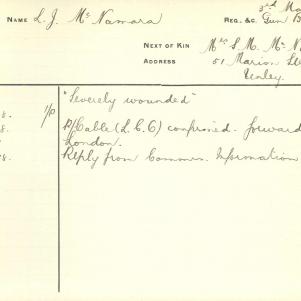 NAME L. J. McNamara
3rd
REG. &c. Gun
NEXT OF KIN Mrs S. M. Mc N
ADDRESS 51 Marion
Unley
"Severely wounded"
8. 1/P
8. P/Cable (L.C.6) confirmed. forward
London.
8. Reply from Commun. Information